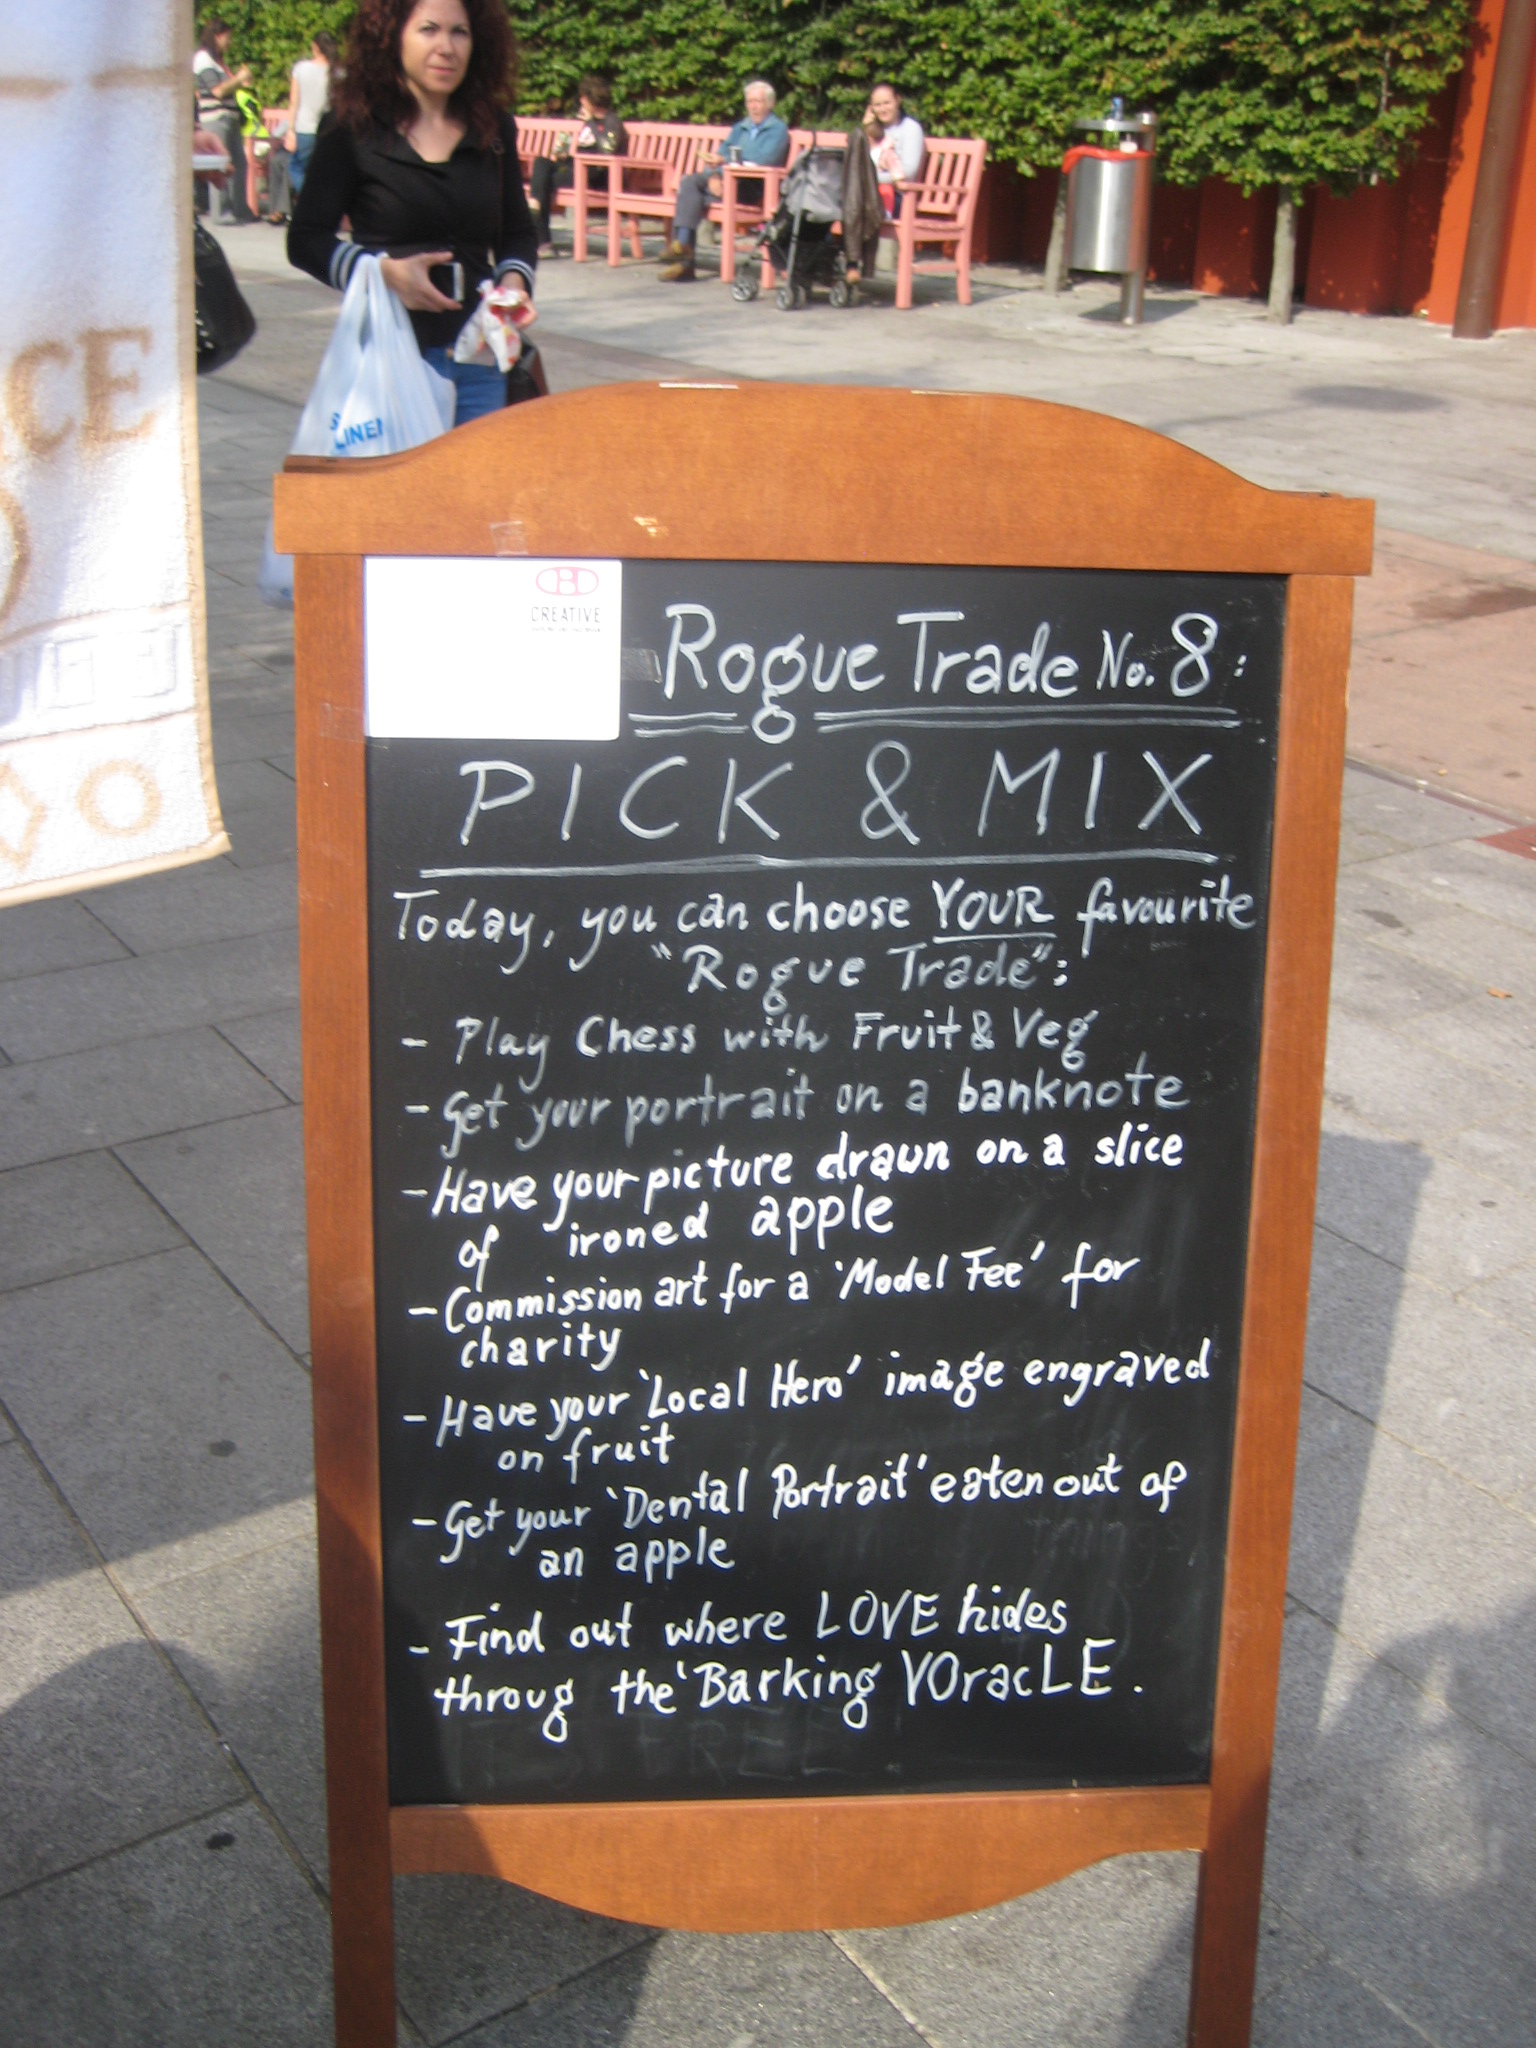 CE
LINEN
CREATIVE
Rogue Trade No. 8:
PICK & MIX
Today, you can choose YOUR favourite
"Rogue Trade":
- Play Chess with Fruit & Veg
- Get your portrait on a banknote
- Have your picture drawn on a slice
of ironed apple
- Commission art for a 'Model Fee' for
charity
- Have your 'Local Hero' image engraved
on fruit
- Get your 'Dental Portrait' eaten out of
an apple
- Find out where LOVE hides
throug the 'Barking VOracLE.